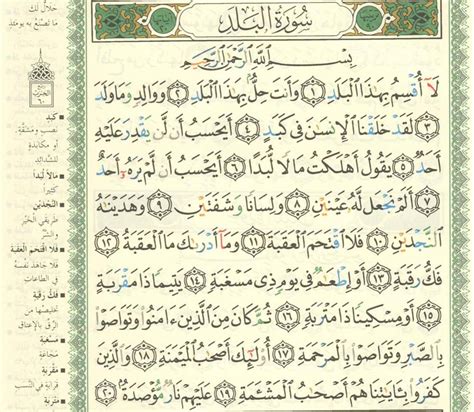 سُورَةُ البَلَدِ
بِسْمِ ٱللَّهِ ٱلرَّحْمَٰنِ ٱلرَّحِيمِ
لَآ أُقْسِمُ بِهَٰذَا ٱلْبَلَدِ ١ وَأَنتَ حِلٌّۢ بِهَٰذَا ٱلْبَلَدِ ٢ وَوَالِدٍ وَمَا وَلَدَ
٣ لَقَدْ خَلَقْنَا ٱلْإِنسَٰنَ فِى كَبَدٍ ٤ أَيَحْسَبُ أَن لَّن يَقْدِرَ عَلَيْهِ
أَحَدٌ ٥ يَقُولُ أَهْلَكْتُ مَالًا لُّبَدًا ٦ أَيَحْسَبُ أَن لَّمْ يَرَهُۥٓ أَحَدٌ
٧ أَلَمْ نَجْعَل لَّهُۥ عَيْنَيْنِ ٨ وَلِسَانًا وَشَفَتَيْنِ ٩ وَهَدَيْنَٰهُ
ٱلنَّجْدَيْنِ ١٠ فَلَا ٱقْتَحَمَ ٱلْعَقَبَةَ ١١ وَمَآ أَدْرَىٰكَ مَا ٱلْعَقَبَةُ ١٢
فَكُّ رَقَبَةٍ ١٣ أَوْ إِطْعَٰمٌ فِى يَوْمٍ ذِى مَسْغَبَةٍ ١٤ يَتِيمًا ذَا مَقْرَبَةٍ
١٥ أَوْ مِسْكِينًا ذَا مَتْرَبَةٍ ١٦ ثُمَّ كَانَ مِنَ ٱلَّذِينَ ءَامَنُوا۟ وَتَوَاصَوْا۟
بِٱلصَّبْرِ وَتَوَاصَوْا۟ بِٱلْمَرْحَمَةِ ١٧ أُو۟لَٰٓئِكَ أَصْحَٰبُ ٱلْمَيْمَنَةِ ١٨ وَٱلَّذِينَ
كَفَرُوا۟ بِـَٔايَٰتِنَا هُمْ أَصْحَٰبُ ٱلْمَشْـَٔمَةِ ١٩ عَلَيْهِمْ نَارٌ مُّؤْصَدَةٌۢ ٢٠
حَلَالٌ لَكَ
مَا تَصْنَعُ بِهِ يومئذٍ
كَبَدٍ
نَصَبٍ ومَشَقَّةٍ
أو مكابدةٍ
للشدائد
مَالًا لُبَدًا
كثيراً
النَّجْدَيْنِ
طريقَي الخَيْرِ
والشَّرِّ
فَلَا اقْتَحَمَ العَقَبَةَ
فلا جاهد نفسه
في الطاعات
فَكُّ رَقَبَةٍ
تخليصها من
الرِّقِّ بالإعتاق
مَسْغَبَةٍ
مَجَاعَةٍ
مَقْرَبَةٍ
قَرَابَةٍ
مَتْرَبَةٍ